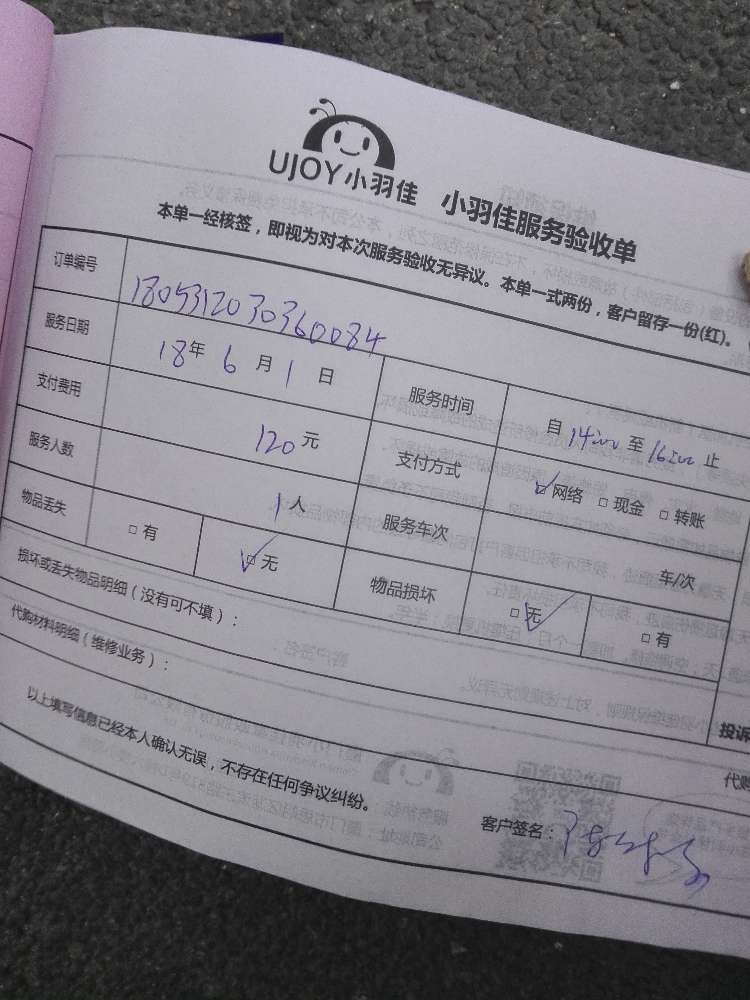 UJOY小羽佳 小羽佳服务验收单
本单一经核签，即视为对本次服务验收无异议。本单一式两份，客户留存一份(红)。
订单编号 180531203036084
服务日期 18年 6月 1日 服务时间 自 14:00 至 16:00 止
支付费用 120元 支付方式 ☑网络 □现金 □转账
服务人数 1人 服务车次 车/次
物品丢失 □有 ☑无 物品损坏 ☑无 □有
损坏或丢失物品明细（没有可不填）：
代购材料明细（维修业务）：
投诉
代购
以上填写信息已经本人确认无误，不存在任何争议纠纷。
客户签名：